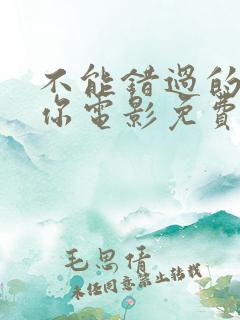 不能错过的
你电影免费
毛思情
未经同意禁止转载